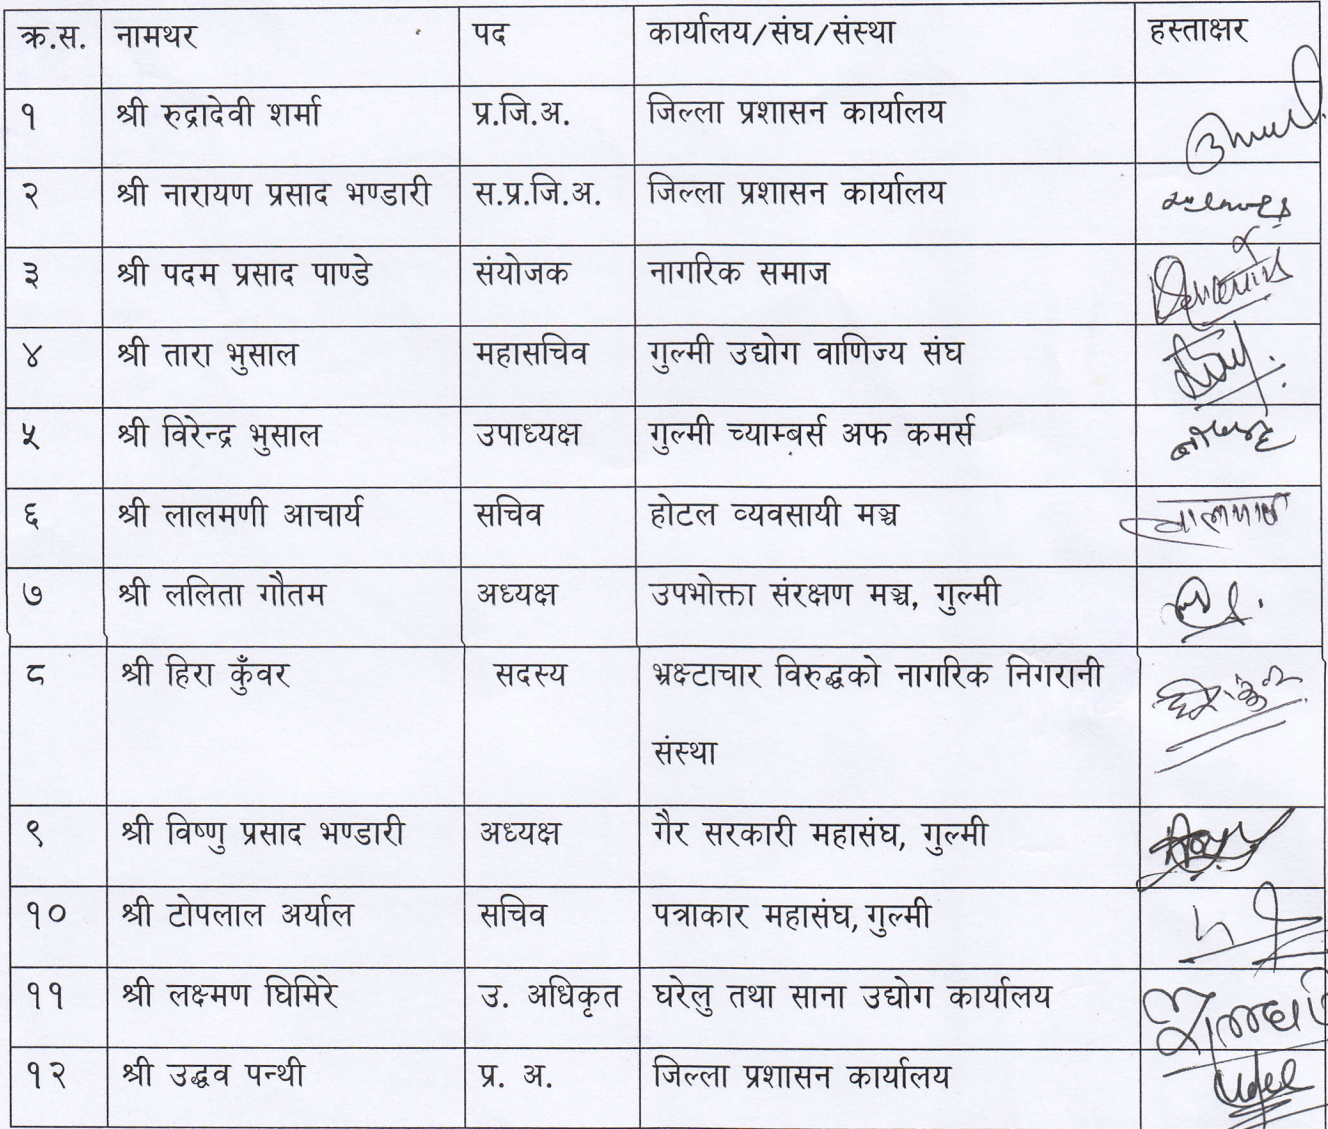 क्र.स. नामथर पद कार्यालय/संघ/संस्था हस्ताक्षर
१ श्री रुद्रादेवी शर्मा प्र.जि.अ. जिल्ला प्रशासन कार्यालय
२ श्री नारायण प्रसाद भण्डारी स.प्र.जि.अ. जिल्ला प्रशासन कार्यालय
३ श्री पदम प्रसाद पाण्डे संयोजक नागरिक समाज
४ श्री तारा भुसाल महासचिव गुल्मी उद्योग वाणिज्य संघ
५ श्री विरेन्द्र भुसाल उपाध्यक्ष गुल्मी च्याम्बर्स अफ कमर्स
६ श्री लालमणी आचार्य सचिव होटल व्यवसायी मञ्च
७ श्री ललिता गौतम अध्यक्ष उपभोक्ता संरक्षण मञ्च, गुल्मी
८ श्री हिरा कुँवर सदस्य भ्रक्ष्टाचार विरुद्धको नागरिक निगरानी
संस्था
९ श्री विष्णु प्रसाद भण्डारी अध्यक्ष गैर सरकारी महासंघ, गुल्मी
१० श्री टोपलाल अर्याल सचिव पत्राकार महासंघ, गुल्मी
११ श्री लक्ष्मण घिमिरे उ. अधिकृत घरेलु तथा साना उद्योग कार्यालय
१२ श्री उद्धव पन्थी प्र. अ. जिल्ला प्रशासन कार्यालय